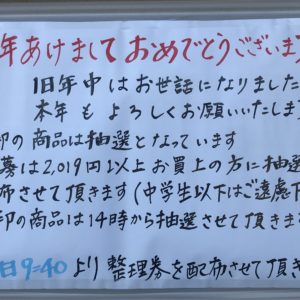 年あけましておめでとうございます
旧年中はお世話になりました
本年もよろしくお願いいたします
印の商品は抽選となっています
募は2,019円以上お買上の方に抽選
布させて頂きます(中学生以下はご遠慮下
印の商品は14時から抽選させて頂きます
日9=40より整理券を配布させて頂き